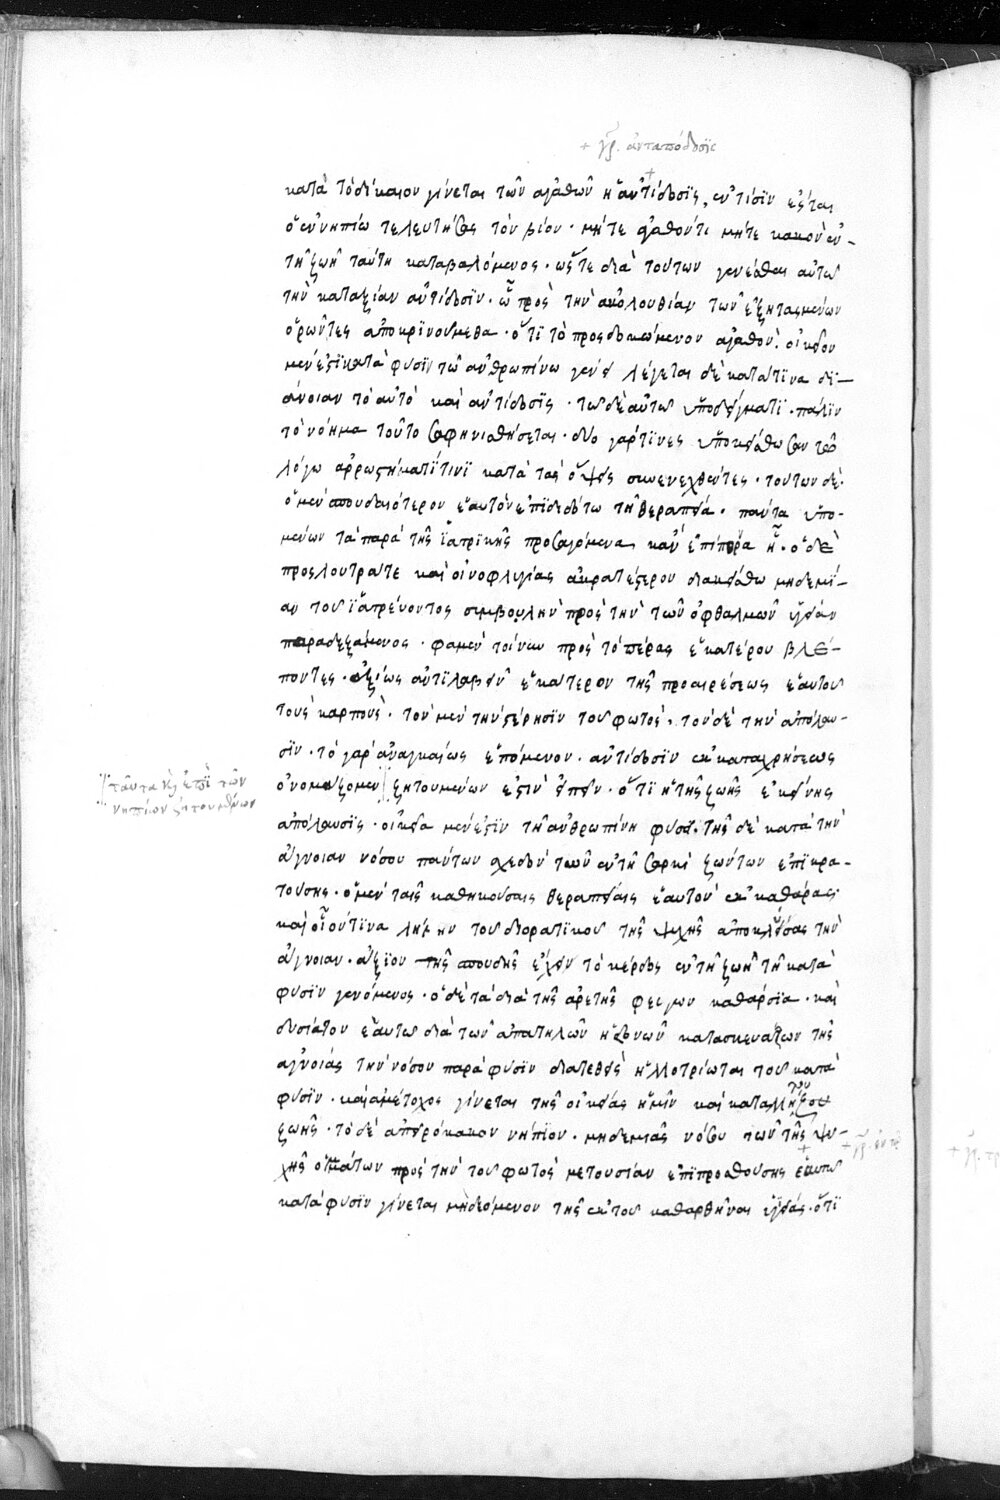 + γρ. ἀνταπόδοσϊς
κατὰ τὸ δίκαιον γίνεται τῶν ἀγαθῶν ἡ ἀντίδοσϊς, ἐν τίσϊν ἔσται
ὁ ἐν νηπίω τελευτήσας τὸν βίον · μήτε ἀγαθόν τι μήτε κακὸν ἐν
τῆ ζωῆ ταύτη καταβαλόμενος · ὥστε διὰ τούτων γενέσθαι αὐτῶ
τὴν καταξίαν ἀντίδοσϊν · ὧ πρὸς τὴν ἀκολουθίαν τῶν ἐξητασμένων
ὁρῶντες ἀποκρϊνούμεθα · ὅτϊ τὸ προσδοκώμενον ἀγαθὸν, οἰκεῖον
μέν ἐστϊ κατὰ φύσϊν τῶ ἀνθρωπίνω γένει λέγεται δὲ κατά τϊνα δϊ-
άνοιαν τὸ αὐτὸ καὶ ἀντίδοσϊς · τῶ δὲ αὐτῶ ὑποδείγματϊ · πάλϊν
τὸ νόημα τοῦτο σαφηνισθήσεται · δύο γάρ τϊνες ὑποκείσθωσαν τῶ
λόγω ἀρρωστήματί τινϊ κατὰ τὰς ὄψεις συνενεχθέντες · τούτων δὲ
ὁ μὲν σπουδαιότερον ἑαυτὸν ἐπϊδιδότω τῆ θεραπεία · πάντα ὑπο-
μένων τὰ παρὰ τῆς ἰατρϊκῆς προσαγόμενα, κἂν ἐπίπονα ἦ · ὁ δὲ
πρὸς λουτρά τε καὶ οἰνοφλυγίας ἀκρατέστερον διακείσθω μηδεμί-
αν τοῦ ἰατρεύοντος συμβουλὴν πρὸς τὴν τῶν ὀφθαλμῶν ὑγείαν
παραδεξάμενος · φαμὲν τοίνυν πρὸς τὸ πέρας ἑκατέρου βλέ-
ποντες · ἀξίως ἀντϊλαβεῖν ἑκάτερον τῆς προαιρέσεως ἑαυτοῦ
τοὺς καρποὺς · τὸν μὲν τὴν στέρησϊν τοῦ φωτὸς · τὸν δὲ τὴν ἀπόλαυ-
σϊν · τὸ γὰρ ἀναγκαίως ἑπόμενον · ἀντίδοσϊν ἐκ καταχρήσεως
ὀνομάζομεν ζητουμένων ἐστὶν εἰπεῖν · ὅτϊ ἡ τῆς ζωῆς ἐκείνης
ταῦτα καὶ ἐπὶ τῶν
νηπίων ζητουμένων
ἀπόλαυσϊς · οἰκεία μέν ἐστϊν τῆ ἀνθρωπίνη φύσει · τῆς δὲ κατὰ τὴν
ἄγνοιαν νόσου πάντων σχεδὸν τῶν ἐν τῆ σαρκὶ ζώντων ἐπϊκρα-
τούσης · ὁ μὲν ταῖς καθηκούσαις θεραπείαις ἑαυτὸν ἐκκαθάρας
καὶ οἷον τινα λήμην τοῦ διορατϊκοῦ τῆς ψυχῆς ἀποκλύσας τὴν
ἄγνοιαν · ἄξιον τῆς σπουδῆς ἔχει τὸ κέρδος ἐν τῆ ζωῆ τῆ κατὰ
φύσϊν γενόμενος · ὁ δὲ τὰ διὰ τῆς ἀρετῆς φεύγων καθάρσϊα · καὶ
δυσίατον ἑαυτῶ διὰ τῶν ἀπατηλῶν ἡδονῶν κατασκευάζων τῆς
ἀγνοίας τὴν νόσον παρὰ φύσϊν διατεθεὶς ἠλλοτρίωται τοῦ κατὰ
φύσϊν · καὶ ἀμέτοχος γίνεται τῆς οἰκείας ἡμῖν καὶ καταλλήλου
ζωῆς · τὸ δὲ ἀπειρόκακον νήπϊον · μηδεμιᾶς νόσου τῶν τῆς ψυ-
+ γρ. ἐν τῆ
χῆς ὀμμάτων πρὸς τὴν τοῦ φωτὸς μετουσίαν ἐπϊπροσθούσης ἑαυτῶ
κατὰ φύσϊν γίνεται μὴ δεόμενον τῆς ἐκ τοῦ καθαρθῆναι ὑγείας · ὅτϊ